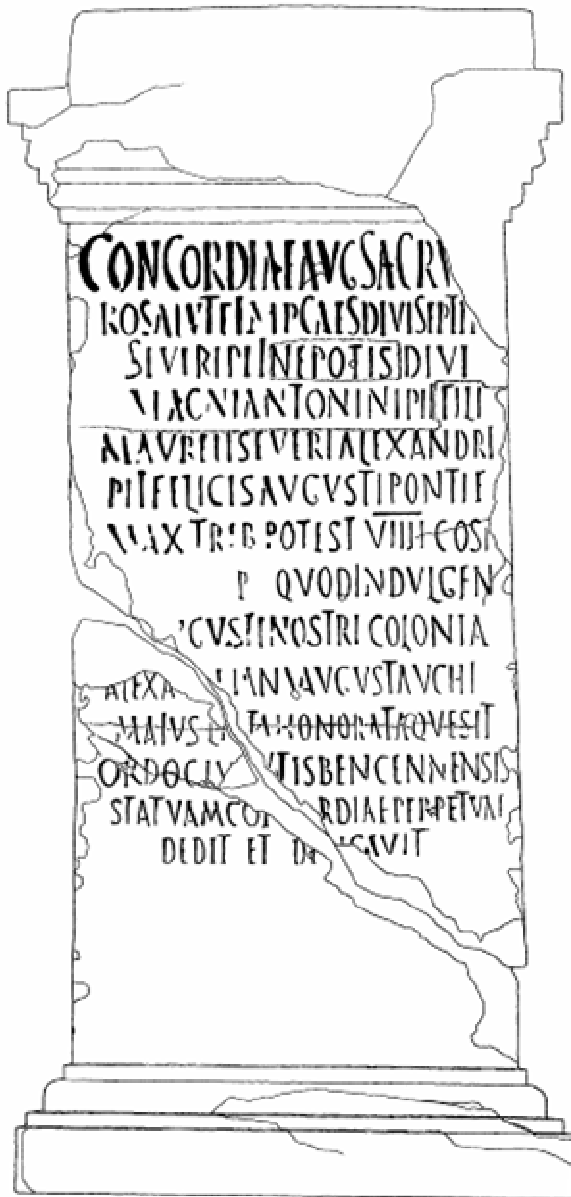 CONCORDIAE AVG SACRV
RO SALVTE IMP CAES DIVI SEPTI
SEVERI PII NEPOTIS DIVI
MAGNI ANTONINI PII FILI
M AVRELI SEVERI ALEXANDRI
PII FELICIS AVGVSTI PONTIF
MAX TRIB POTEST VIIII COS
P QVOD INDVLGEN
GVSTI NOSTRI COLONIA
ALEXA IANA AVGVSTA VCHI
MAIVS TA HONORATAQVE SIT
ORDO CIV TIS BENCENNENSIS
STATVAM CO RDIAE PERPETVAE
DEDIT ET D ICAVIT